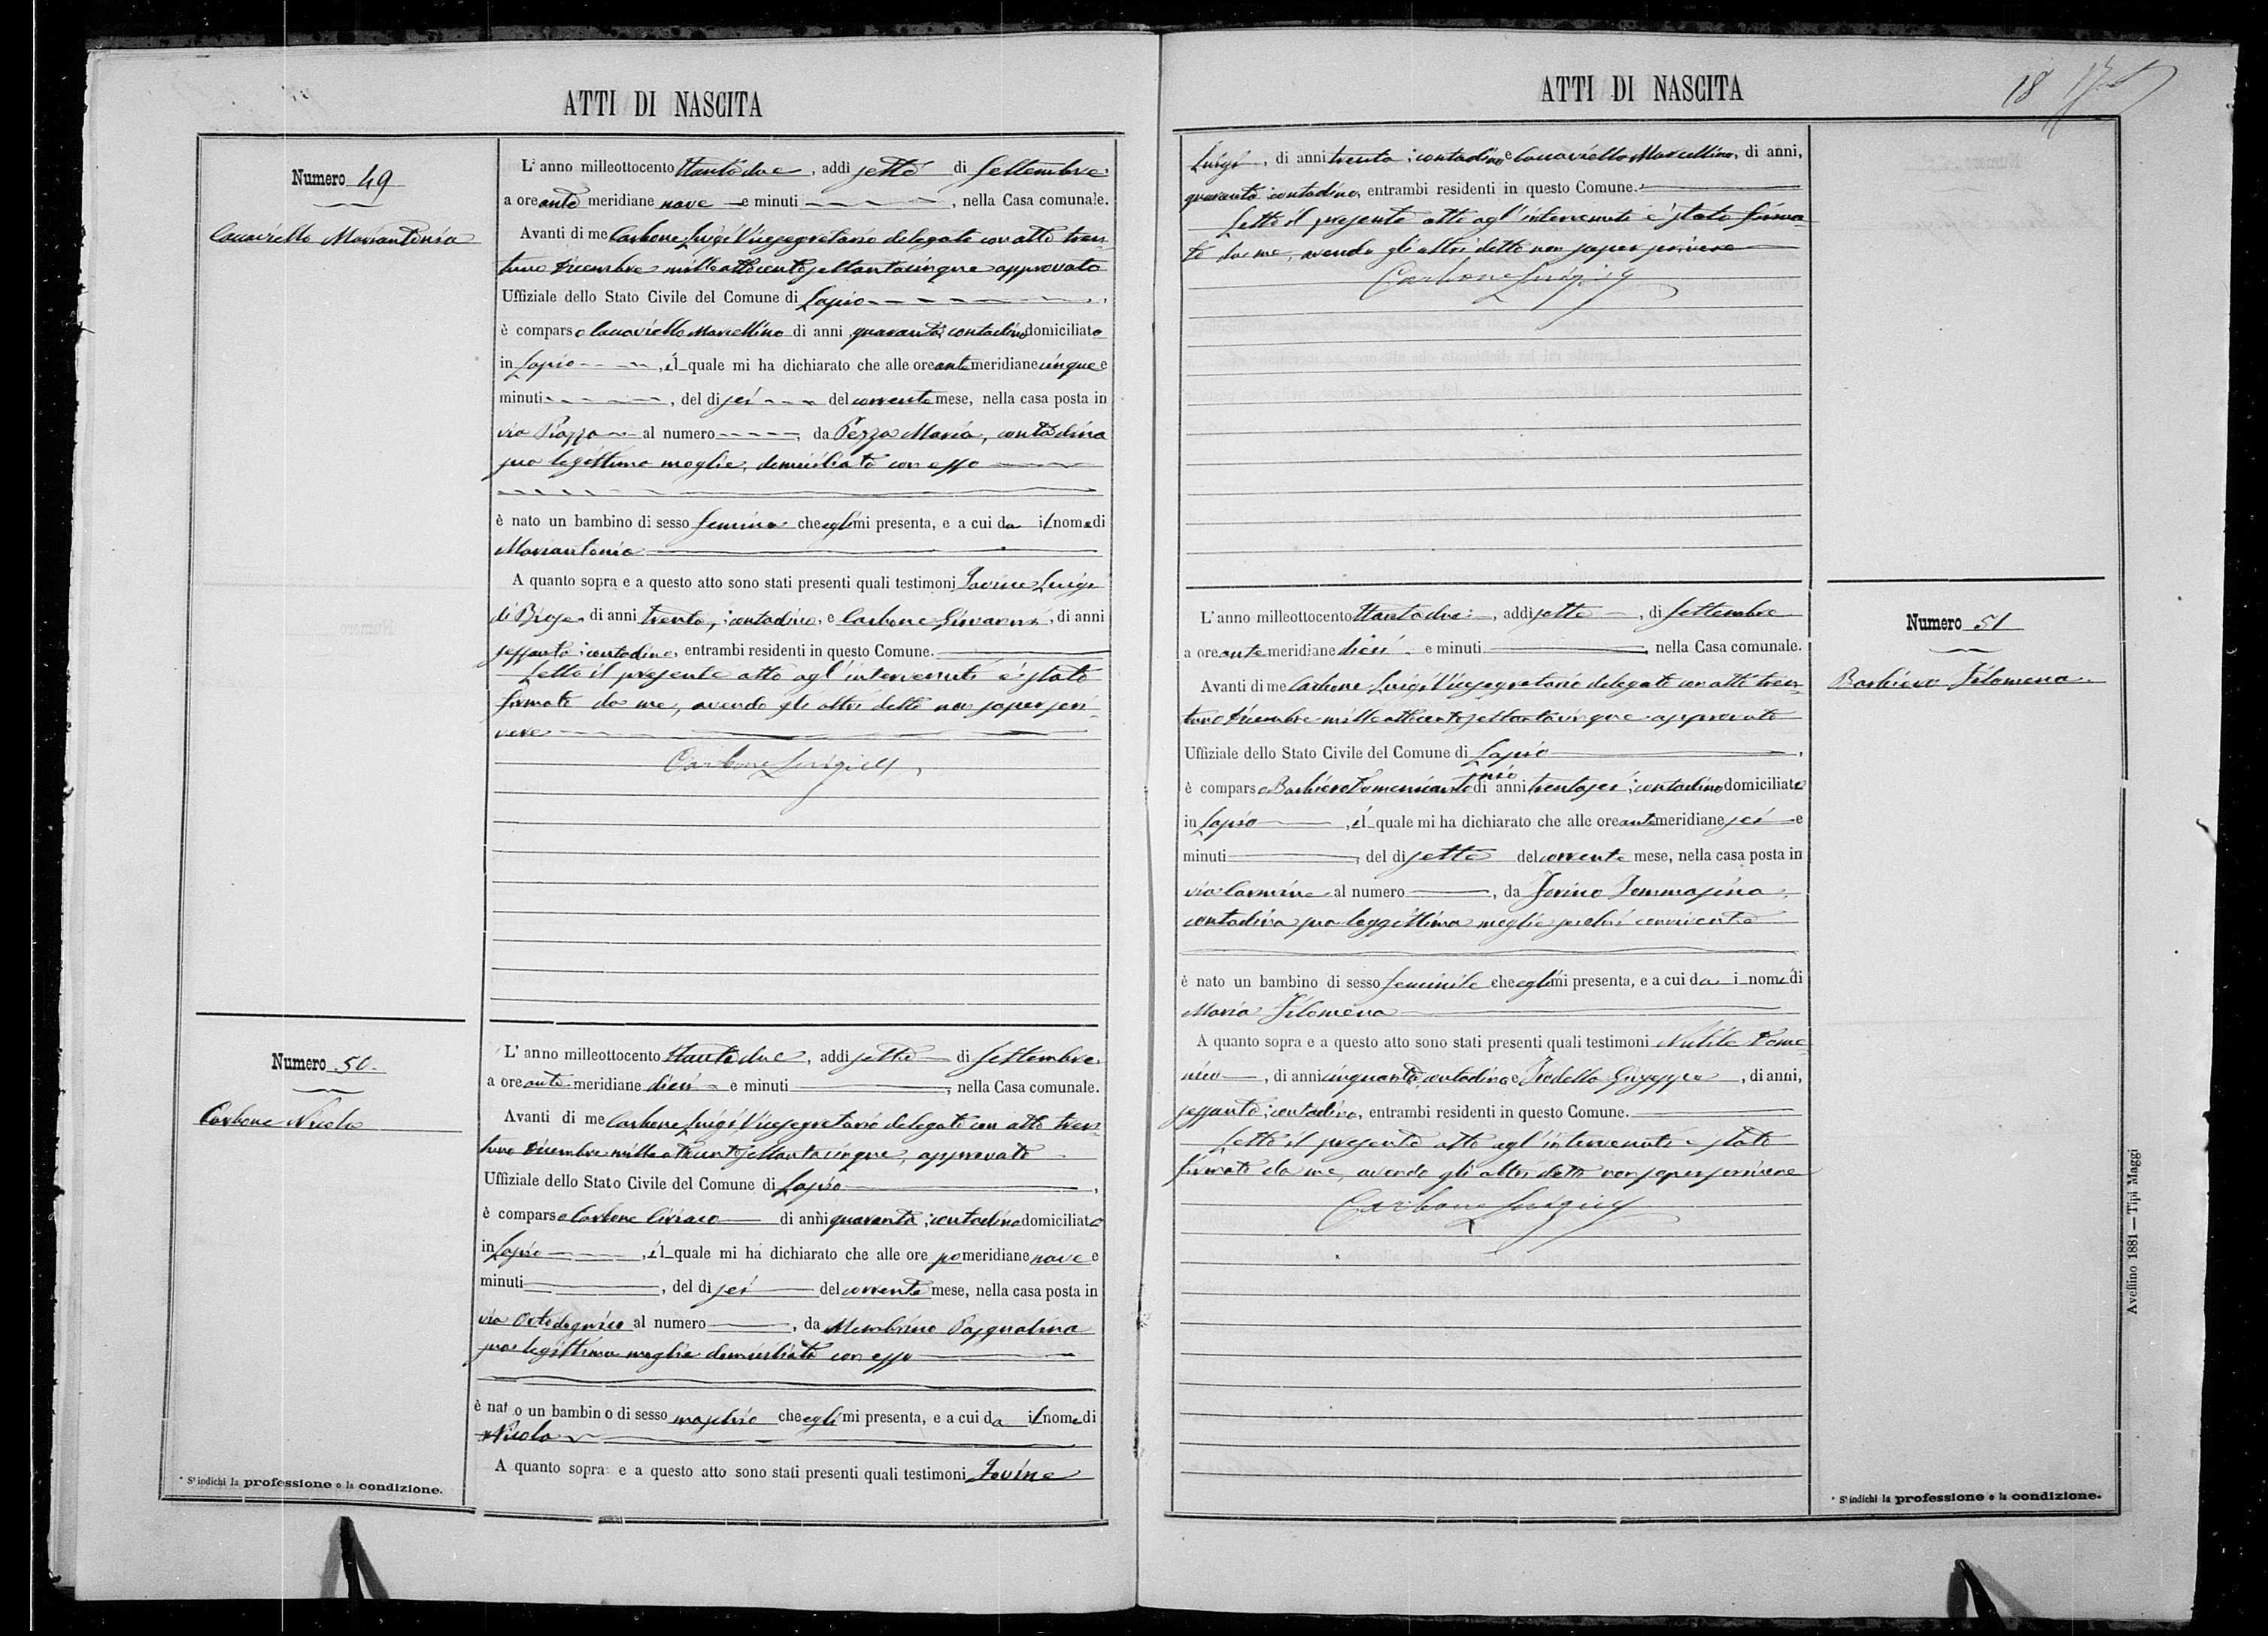 ATTI DI NASCITA
Numero 49
Caccaviello Mariantonia
L'anno milleottocento ttantadue, addi sette di Settembre
a ore ante meridiane nove e minuti, nella Casa comunale.
Avanti di me Carbone Luigi Vicesegretario delegato con atto tren-
tuno Dicembre milleottocentosettantacinque approvato
Uffiziale dello Stato Civile del Comune di Lapio
è comparso Caccaviello Marcellino di anni quaranta contadino domiciliato
in Lapio, il quale mi ha dichiarato che alle ore antemeridiane cinque e
minuti, del dì sei del corrente mese, nella casa posta in
via Piazza al numero, da Pezza Maria, contadina
sua legittima moglie, domiciliata con esso
è nato un bambino di sesso feminino che egli mi presenta, e a cui da il nome di
Mariantonia
A quanto sopra e a questo atto sono stati presenti quali testimoni Iovine Luigi
di anni trenta, contadino, e Carbone Giovanni, di anni
sessanta contadino, entrambi residenti in questo Comune.
Letto il presente atto agl'intervenuti è stato
firmato da me, avendo gli altri detto non saper scri-
vere
Carbone Luigi
Numero 50
Carbone Nicola
L'anno milleottocento ttantadue, addi sette di Settembre
a ore ante meridiane dieci e minuti, nella Casa comunale.
Avanti di me Carbone Luigi Vicesegretario delegato con atto tren-
tuno Dicembre milleottocentosettantacinque, approvato
Uffiziale dello Stato Civile del Comune di Lapio
è comparso Carbone Ciriaco di anni quaranta, contadino domiciliato
in Lapio, il quale mi ha dichiarato che alle ore pomeridiane nove e
minuti, del dì sei del corrente mese, nella casa posta in
via al numero, da Membrino Pasqualina
sua legittima moglie domiciliata con esso
è nato un bambino di sesso maschio che egli mi presenta, e a cui da il nome di
Nicola
A quanto sopra e a questo atto sono stati presenti quali testimoni Iovine
* S'indichi la professione o la condizione.
ATTI DI NASCITA
18
Luigi, di anni trenta contadino e Caccaviello Marcellino, di anni,
quaranta contadino, entrambi residenti in questo Comune.
Letto il presente atto agl'intervenuti è stato firma-
to da me, avendo gli altri detto non saper scrivere
Carbone Luigi
L'anno milleottocento ttantadue, addi sette, di Settembre
a ore ante meridiane dieci e minuti, nella Casa comunale.
Avanti di me Carbone Luigi Vicesegretario delegato con atto tren-
tuno Dicembre milleottocentosettantacinque approvato
Uffiziale dello Stato Civile del Comune di Lapio,
è comparso Barbiero Domenicantonio di anni trentasei, contadino domiciliato
in Lapio, il quale mi ha dichiarato che alle ore antemeridiane sei e
minuti, del dì sette del corrente mese, nella casa posta in
via Carmine al numero, da Iovino Tommasina
contadina sua leggittima moglie seco lui convivente
è nato un bambino di sesso feminile che egli mi presenta, e a cui da i nome di
Maria Filomena
A quanto sopra e a questo atto sono stati presenti quali testimoni Nubile Dome-
nico, di anni cinquanta, contadino e Giuseppe, di anni,
sessanta, contadino, entrambi residenti in questo Comune.
Letto il presente atto agl'intervenuti è stato
firmato da me, avendo gli altri detto non saper scrivere
Carbone Luigi
Numero 51
Barbiero Filomena
* S'indichi la professione o la condizione.
Avellino 1881 — Tipi Maggi